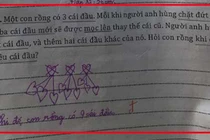 . Một con rồng có 3 cái đầu. Mỗi khi người anh hùng chặt đứt
ba cái đầu mới sẽ được mọc lên thay thế cái cũ. Người anh h
cái đầu, và thêm hai cái đầu khác của nó. Hỏi con rồng khi
êu cái đầu?
con rồng có 9